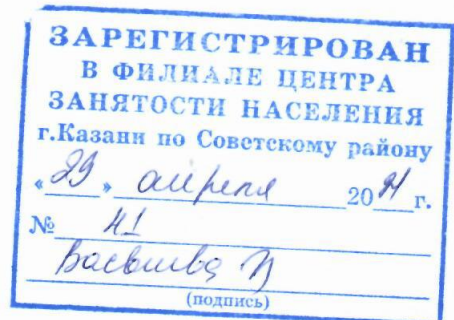 ЗАРЕГИСТРИРОВАН
В ФИЛИАЛЕ ЦЕНТРА
ЗАНЯТОСТИ НАСЕЛЕНИЯ
г.Казани по Советскому району
«29» апреля 20 г.
№ 41
(подпись)